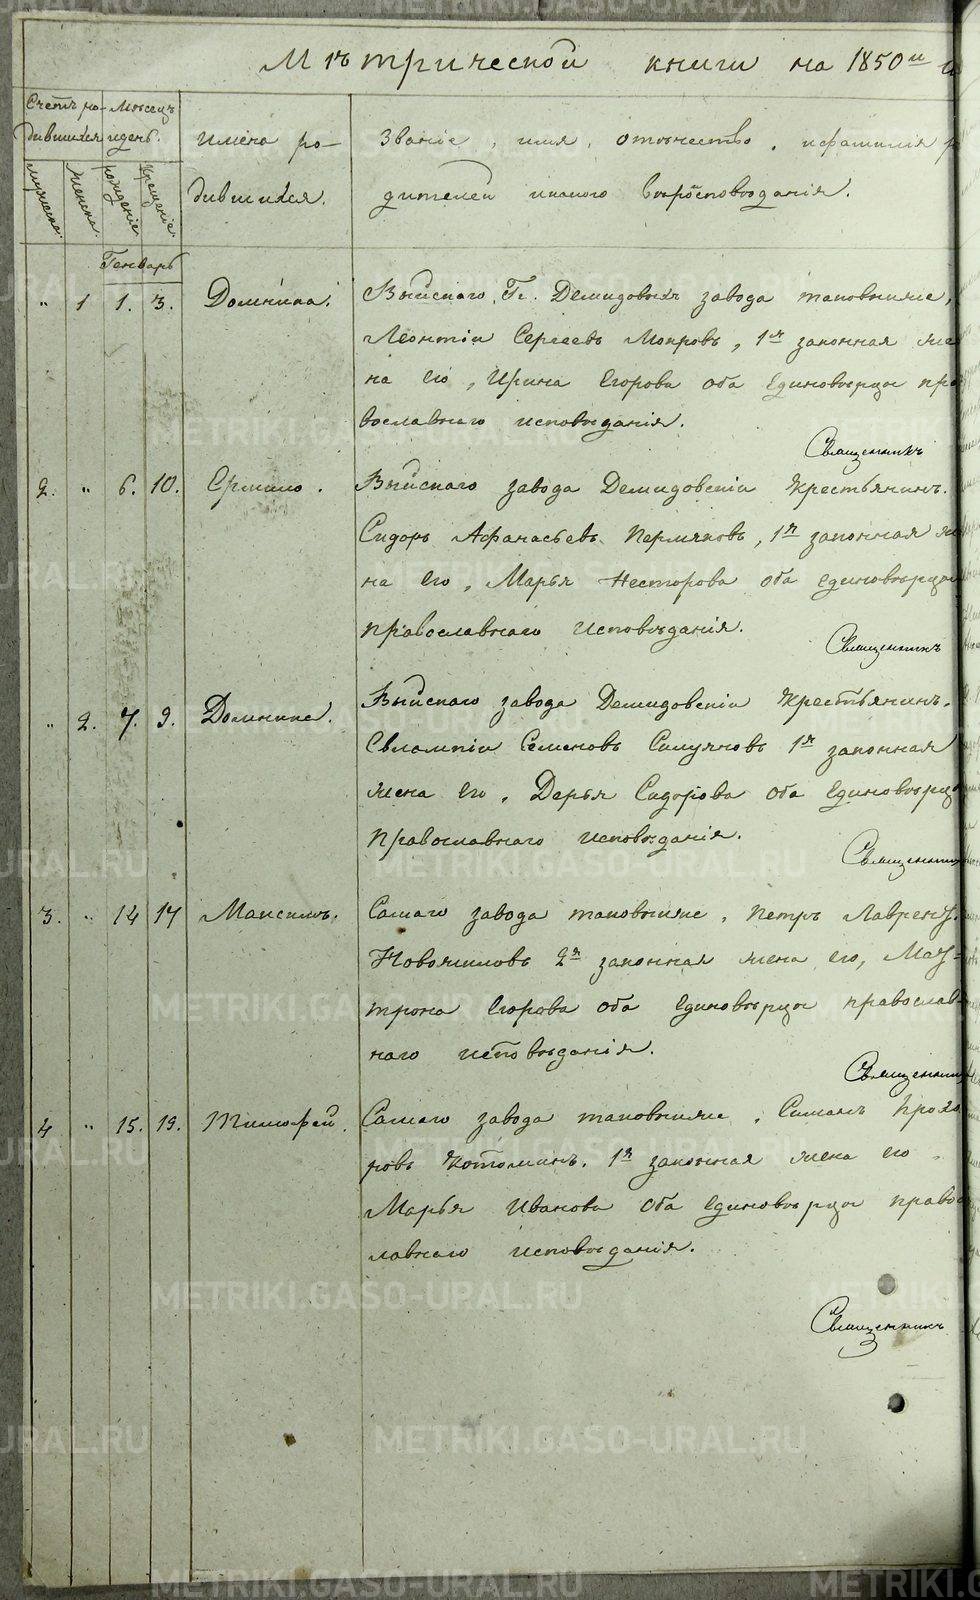 Метрической книги на 1850й
Счетъ ро- Месецъ
дившихся и день.
Имена ро-
дившихся.
Званіе, имя, отечество, и фамилія
дителей и какого вероисповеданія.
мужеска.
женска.
рожденіе
крещеніе.
Генварь
" 1 1. 3. Домника. Выйскаго Гг. Демидовыхъ завода таковыяже,
Леонтій Сергеевъ Мокровъ, 1я законная же
на его, Ирина Егорова оба единоверцы пра
вославнаго исповеданія.
Священникъ
2. " 6. 10. Ермило. Выйскаго завода Демидовскій крестьянинъ.
Сидоръ Афанасьевъ Пермяковъ, 1я законная же
на его, Марья Несторова оба единоверцы
православнаго исповеданія.
Священникъ
" 2. 7. 9. Домника. Выйскаго завода Демидовскій крестьянинъ.
Евлампій Семеновъ Силуяновъ 1я законная
жена его, Дарья Сидорова оба единоверцы
православнаго исповеданія.
Священник
3. " 14 17 Максимъ. Самаго завода таковыяже, Петръ Лаврент.
Новожиловъ 2я законная жена его, Мат-
трона Егорова оба единоверцы православ-
наго исповеданія.
Священник
4 " 15. 19. Тимофей. Самаго завода таковыяже, Симанъ Прохо
ровъ Котомкинъ. 1я законная жена его,
Марья Иванова оба единоверцы правос
лавнаго исповеданія.
Священникъ
METRIKI.GASO-URAL.RU